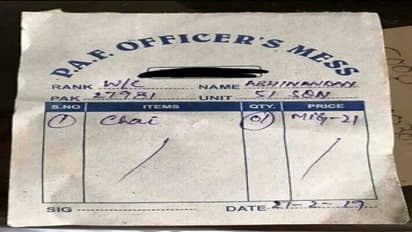 P.A.F. OFFICER'S MESS
RANK W/C NAME ABHINANDAN
PAK 27981 UNIT 51 SQN
S.NO ITEMS QTY. PRICE
1 Chai 01 MIG-21
SIG DATE 21-2-19